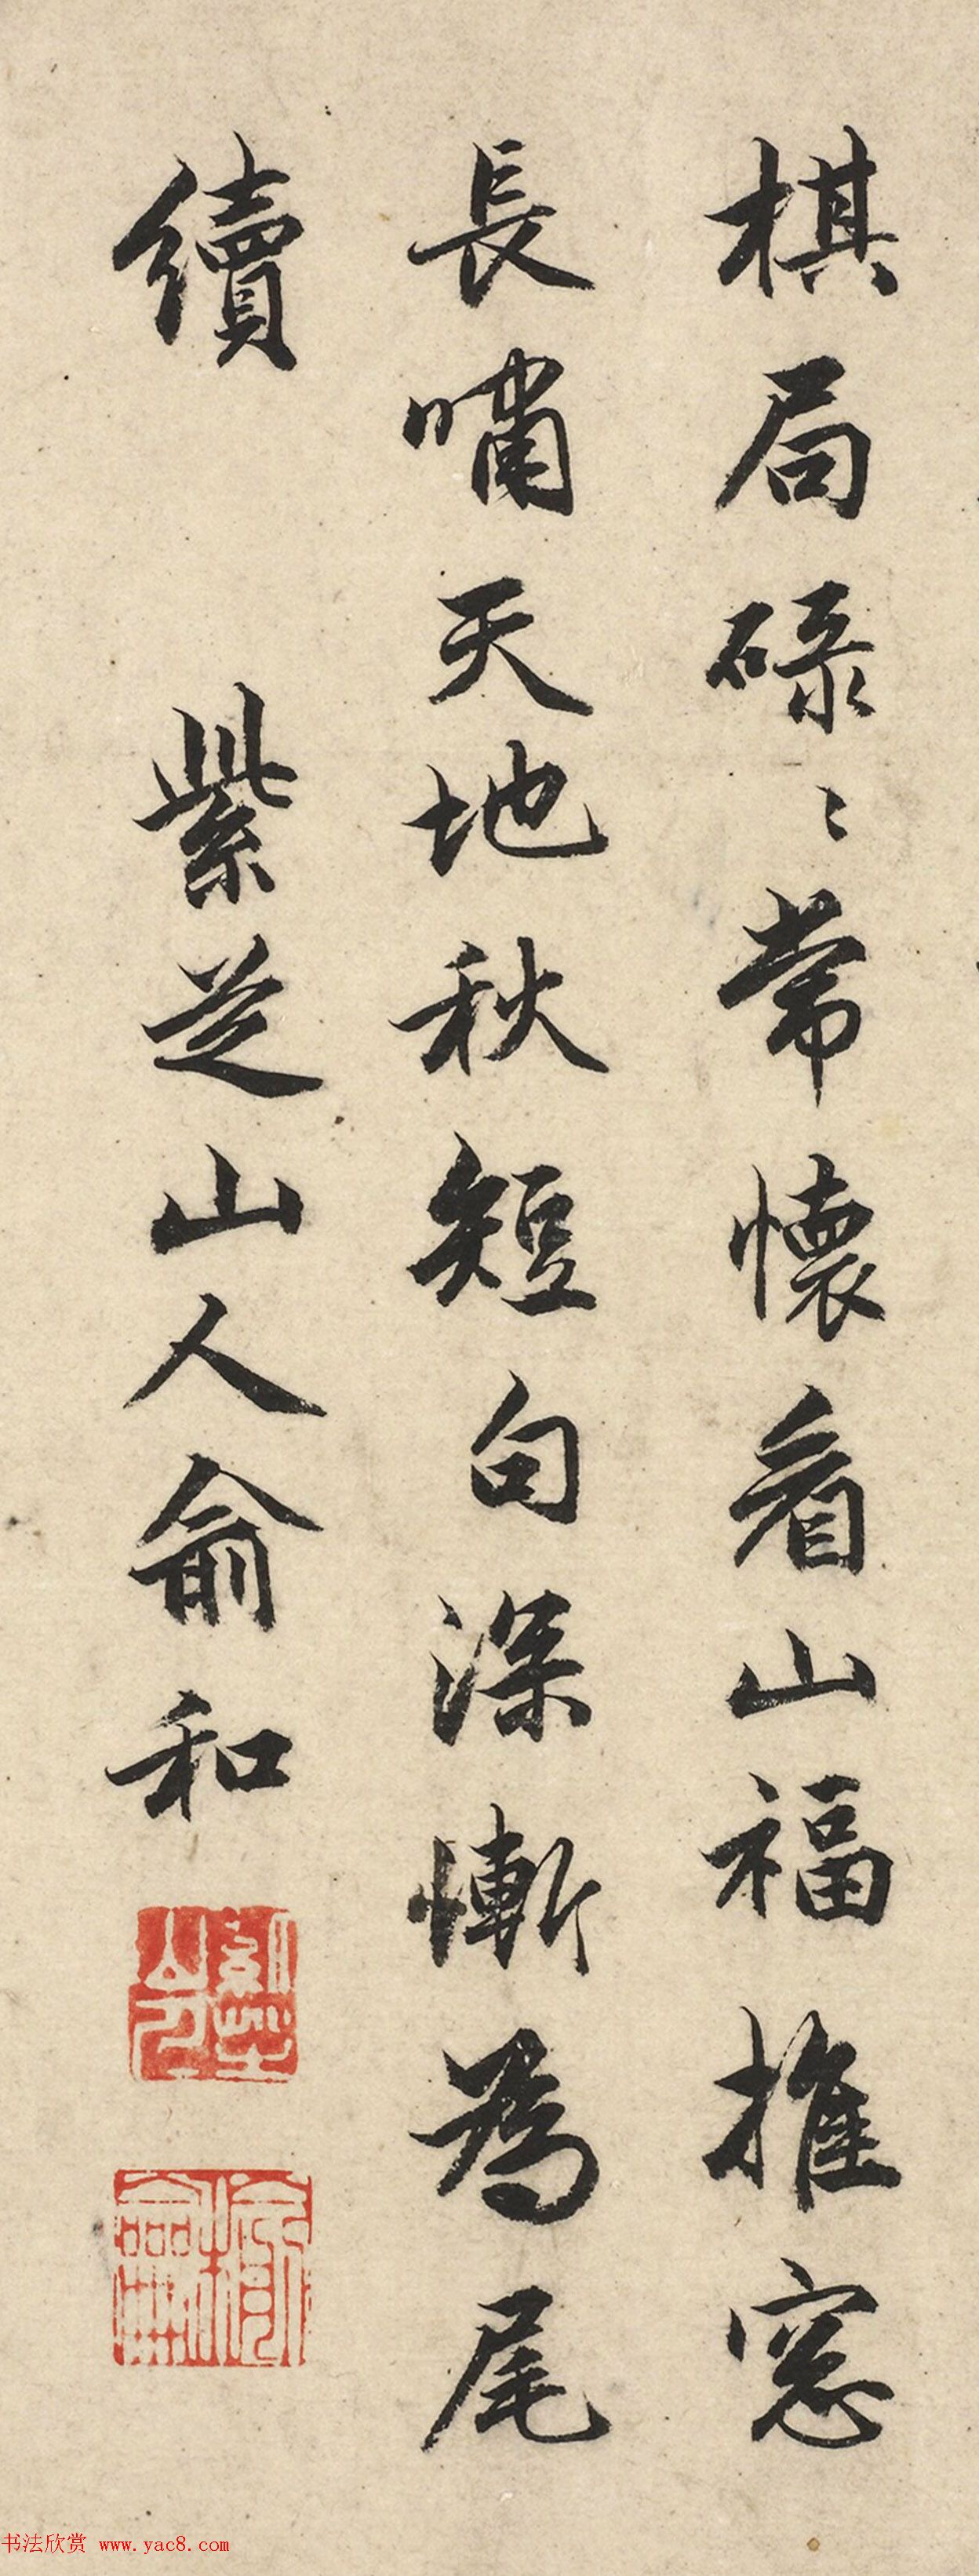 棋局碌〻常懷看山福推窓
長嘯天地秋短句深慚為尾
續 紫芝山人俞和
紫芝山人
俞龢
书法欣赏 www.yac8.com